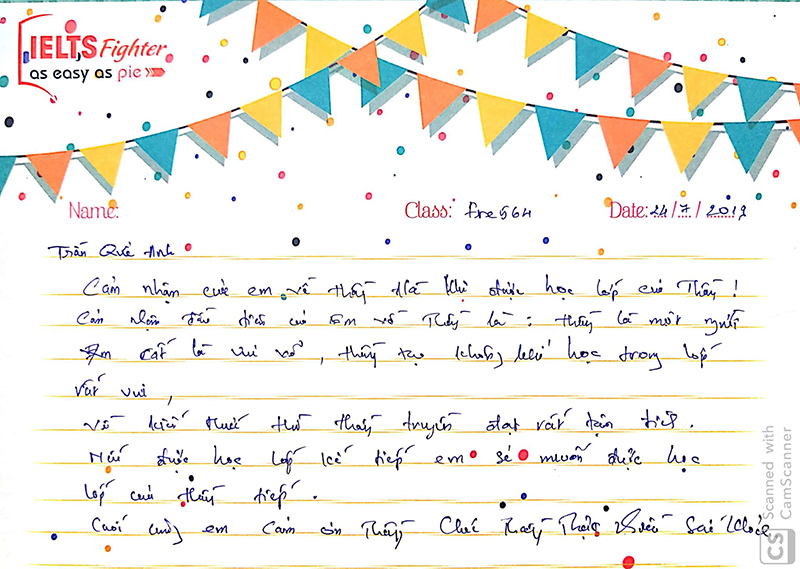 IELTS Fighter
as easy as pie
Name:
Class: Pre 564
Date: 24/7/2019
Trần Quế Anh
Cảm nhận của em về thầy Hà khi được học lớp của Thầy!
Cảm nhận đầu tiên của em về Thầy là: thầy là một người
rất là vui vẻ, thầy tạo không khí học trong lớp
rất vui,
về kiến thức thì thầy truyền đạt rất tận tiếp.
Nếu được học lớp kế tiếp em sẽ muốn được học
lớp của thầy tiếp.
Cuối cùng em cảm ơn Thầy Chúc Thầy Thật nhiều Sức khỏe
Scanned with
CamScanner
CS